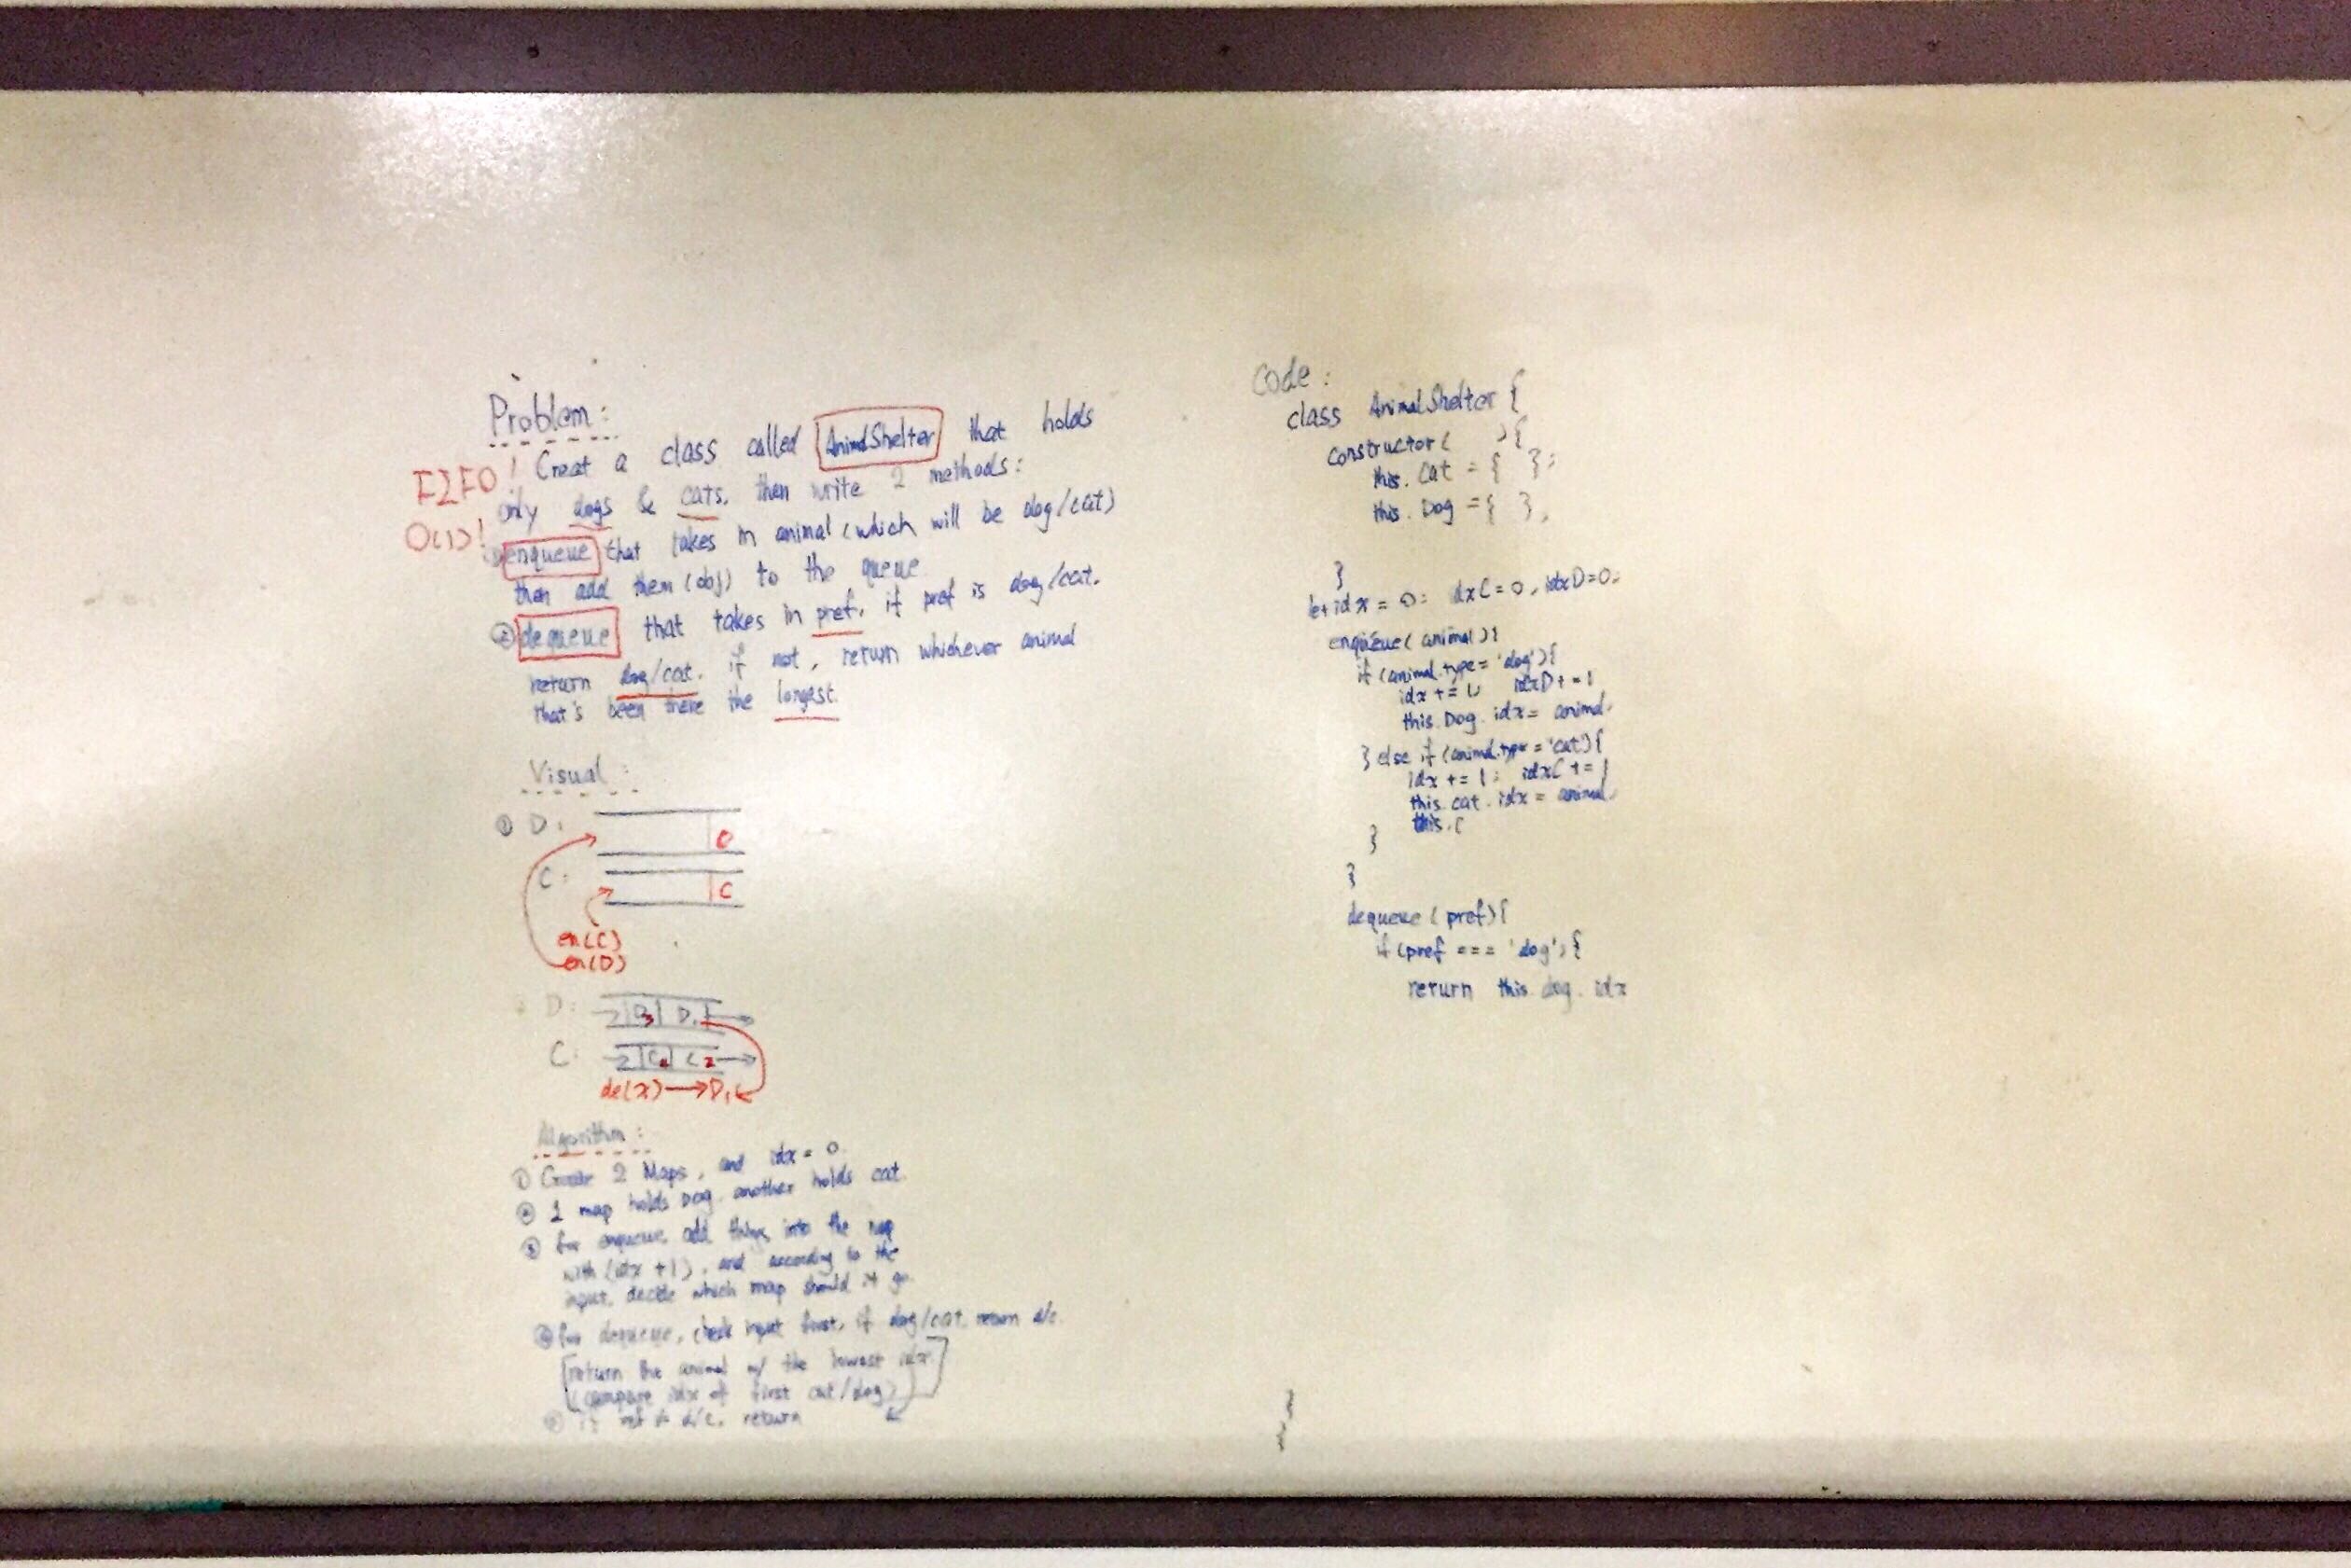 Problem:
FIFO! Creat a class called AnimalShelter that holds
only dogs & cats. then write 2 methods:
O(1)! enqueue that takes in animal (which will be dog/cat)
then add them (obj) to the queue
② dequeue that takes in pref. if pref is dog/cat.
return dog/cat. if not, return whichever animal
that's been there the longest.
Visual:
① D:
C:
C
en(C)
en(D)
D: D3 D1
C: C4 C2
de(x) → D1
Algorithm:
① Create 2 Maps, and idx = 0
② 1 map holds Dog. another holds cat.
③ for enqueue, add things into the map
with (idx +1), and according to the
input, decide which map should it go.
④ for dequeue, check input first, if dog/cat. return d/c.
[return the animal w/ the lowest idx]
(compare idx of first cat/dog)
if not d/c. return
Code:
class AnimalShelter {
constructor( ){
this. Cat = { };
this. Dog = { },
}
let idx = 0; idxC = 0, idxD=0;
enqueue( animal ){
if (animal.type = 'dog'){
idx += 1; idxD += 1
this.Dog. idx = animal.
} else if (animal.type = 'cat'){
idx += 1; idxC += 1
this. cat. idx = animal.
this.C
}
}
dequeue ( pref){
if (pref === 'dog'){
return this. dog. idx
}
}